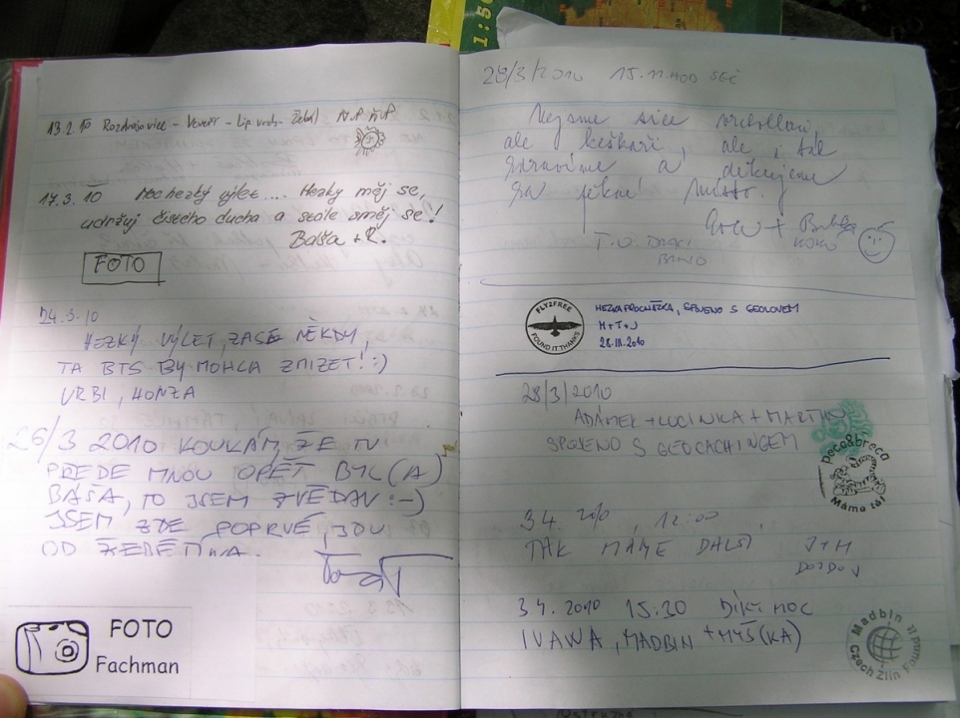 1:50
13.2.10 Rozdrojovice - Veveří - Lip. vrch -
17.3.10 Moc hezký výlet.... Hezky měj se,
udržuj čistého ducha a stále směj se!
Balša + R.
FOTO
24.3.10
HEZKÝ VÝLET, ZASE NĚKDY,
TA BTS BY MOHLA ZMIZET! :)
URBI, HONZA
26/3 2010 KOUKÁM, ŽE TU
PŘEDE MNOU OPĚT BYL(A)
BÁŠA, TO JSEM ZVĚDAV :-)
JSEM ZDE POPRVÉ, JDU
OD ŽEBĚTÍNA.
FOTO
Fachman
28/3/2010 15.11 HOD SEČ
Nejsme sice
ale keškaři, ale i tak
zdravíme a děkujeme
za pěkné místo.
T.O.
BRNO
FLY2FREE
FOUND IT, THANKS
HEZKÁ PROCHÁZKA, SPOJENO S GEOLOVEM
M+T+J
28.III.2010
28/3/2010
ADÁMEK + LUCINKA +
SPOJENO S GEOCACHINGEM
Peca&breca
Máme tě!
3.4. 2010, 12:00
TAK MÁME DALŠÍ J+M
3.4. 2010 15.30 DÍKY MOC
IVAWA, MADBIN + MYŠ(KA)
Madbin
Czech Zlin